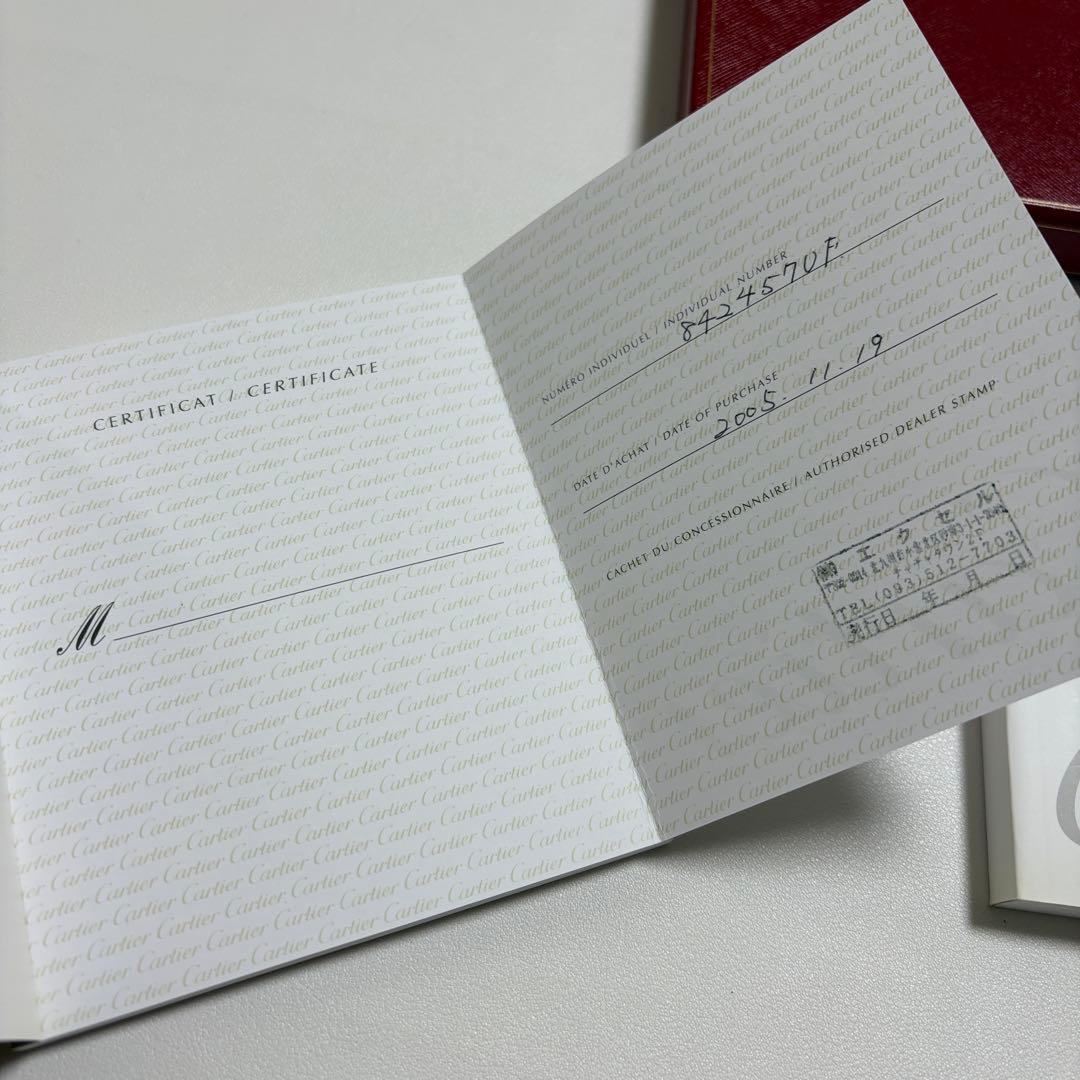 CERTIFICAT / CERTIFICATE
M
NUMÉRO INDIVIDUEL / INDIVIDUAL NUMBER
8424570F
DATE D'ACHAT / DATE OF PURCHASE
2005. 11. 19
CACHET DU CONCESSIONNAIRE / AUTHORISED DEALER STAMP
㈱エクセル
TEL(093)512-7703
発行日 年 月 日
Cartier Cartier Cartier Cartier Cartier